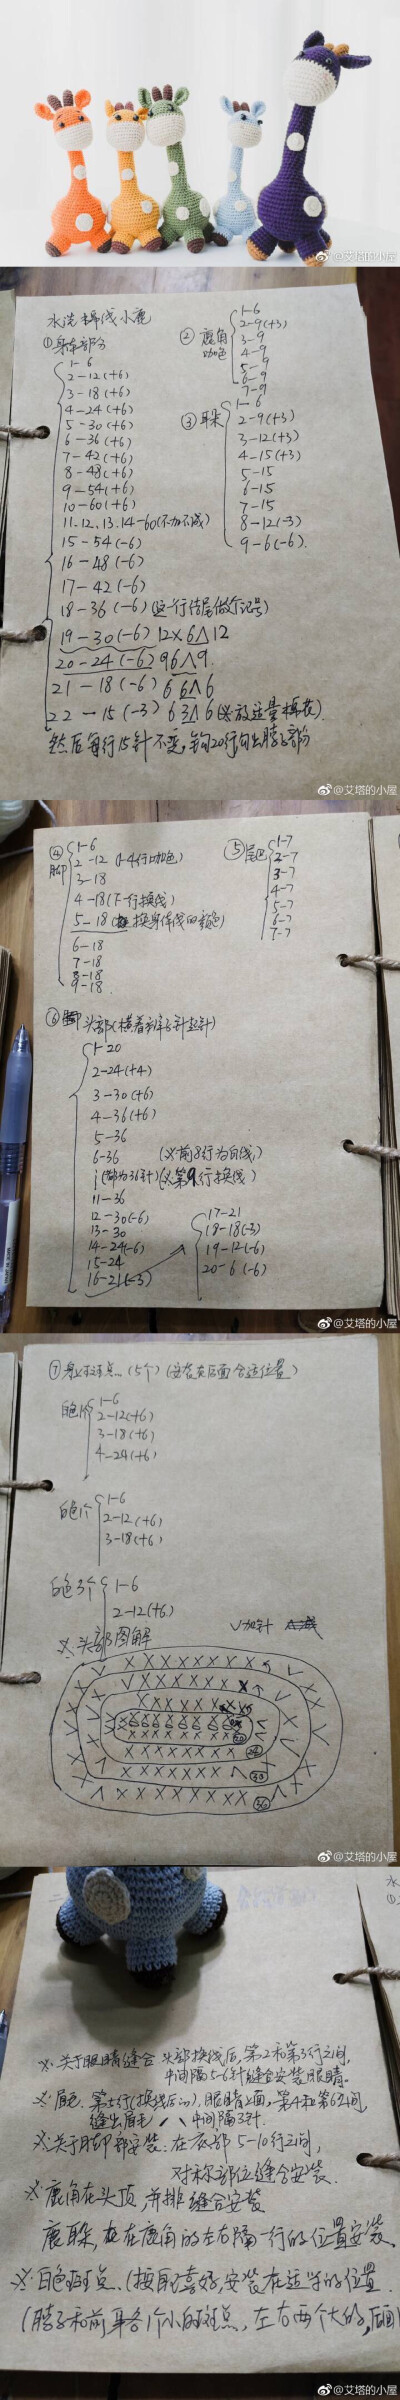 @艾塔的小屋
水洗棉线小鹿
①身体部分
1-6
2-12(+6)
3-18(+6)
4-24(+6)
5-30(+6)
6-36(+6)
7-42(+6)
8-48(+6)
9-54(+6)
10-60(+6)
11.12.13.14-60(不加不减)
15-54(-6)
16-48(-6)
17-42(-6)
18-36(-6)(这一行结尾做个记号)
19-30(-6) 12X 6Λ 12
20-24(-6) 9 6Λ 9
21-18(-6) 6 6Λ 6
22-15(-3) 6 3Λ 6 (※放适量棉花)
然后每行15针不变,钩20行勾出脖子部分
②鹿角
咖色
1-6
2-9(+3)
3-9
4-9
5-9
6-9
7-9
③耳朵
1-6
2-9(+3)
3-12(+3)
4-15(+3)
5-15
6-15
7-15
8-12(-3)
9-6(-6).
@艾塔的小屋
④脚
1-6
2-12(1-4行咖色)
3-18
4-18(下一行换线)
5-18(换身体线的颜色)
6-18
7-18
8-18
9-18
⑤尾巴
1-7
2-7
3-7
4-7
5-7
6-7
7-7
⑥头部(横着辫子针起针)
1-20
2-24(+4)
3-30(+6)
4-36(+6)
5-36
6-36 (※前8行为白线)
(都为36针)(※第9行换线)
11-36
12-30(-6)
13-30
14-24(-6)
15-24
16-21(-3)
17-21
18-18(-3)
19-12(-6)
20-6(-6)
@艾塔的小屋
⑦身上斑点..(5个)(安在在后面合适位置)
白色1个
1-6
2-12(+6)
3-18(+6)
4-24(+6)
白色1个
1-6
2-12(+6)
3-18(+6)
白色3个
1-6
2-12(+6)
※头部图解
V加针
20
24
30
36
@艾塔的小屋
※关于眼睛缝合 头部换线后,第2和第3行之间,
中间隔5-6针缝合安装眼睛.
※眉毛.第5行(换线后的),眼睛上面,第4和第6之间,
缝出眉毛 中间隔3针.
※关于脚部安装:在底部5-10行之间,
对称部位缝合安装.
※鹿角在头顶,并排缝合安装
鹿耳朵,在鹿角的左右隔一行的位置安装.
※白色斑点.(按照喜好,安装在适当的位置.
(脖子和前身各1个小的斑点,左右两个大的,后面
@艾塔的小屋